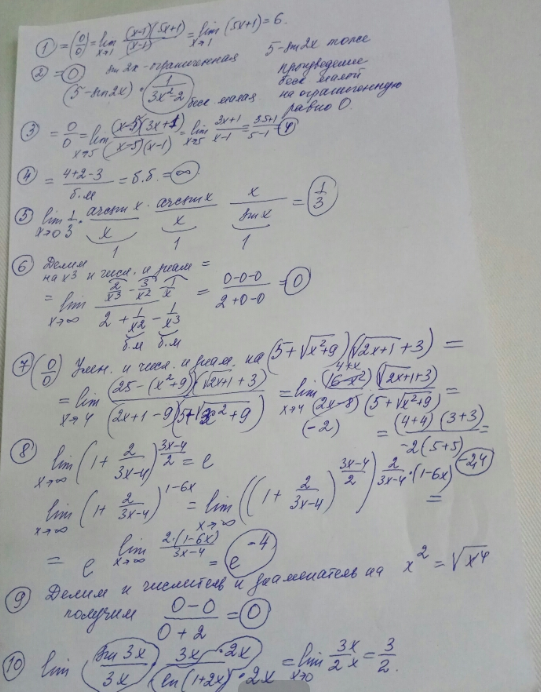 ① = (0/0) = lim x→1 (x-1)(5x+1)/(x-1) = lim x→1 (5x+1) = 6.
② = 0 sin2x - ограниченная 5-sin2x тоже
(5-sin2x) · 1/(3x²-2) беск. малая
произведение
беск. малой
на ограниченную
равно 0.
③ = 0/0 = lim x→5 (x-5)(3x+1)/(x-5)(x-1) = lim x→5 (3x+1)/(x-1) = (3·5+1)/(5-1) = 4
④ = (4+2-3)/б.м = б.б. = ∞
⑤ lim x→0 1/3 · arcsin x/x · arcsin x/x · x/sin x = 1/3
1 1 1
⑥ Делим
на x³ и числ. и знам =
= lim x→∞ (2/x³ - 3/x² - 1/x)/(2 + 1/x² - 1/x³) = (0-0-0)/(2+0-0) = 0
б.м б.м
⑦ (0/0) Умн. и числ. и знам. на (5+√x²+9)(√2x+1+3) =
= lim x→4 (25-(x²+9))(√2x+1+3)/(2x+1-9)(5+√x²+9) = lim x→4 (16-x²)(√2x+1+3)/(2x-8)(5+√x²+9) =
4+x
(-2) = (4+4)(3+3)/-2(5+5) =
⑧ lim x→∞ (1+2/(3x-4))^((3x-4)/2) = e
lim x→∞ (1+2/(3x-4))^(1-6x) = lim x→∞ ((1+2/(3x-4))^((3x-4)/2))^(2/(3x-4)·(1-6x)) =
= e^(lim x→∞ 2·(1-6x)/(3x-4)) = e^(-4)
⑨ Делим и числитель и знаменатель на x² = √x⁴
получим (0-0)/(0+2) = 0
⑩ lim (sin3x/3x) · 3x·2x/(ln(1+2x)·2x) = lim x→0 3x/2x = 3/2.